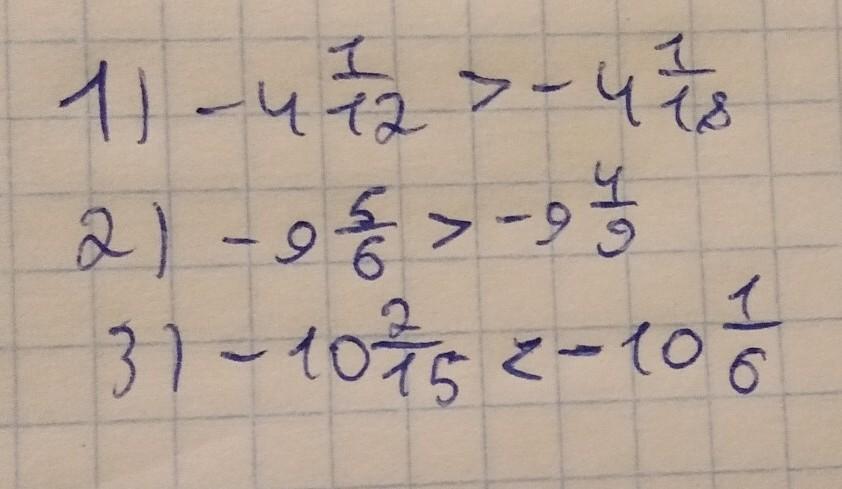 1) -4 1/12 > -4 1/18
2) -9 5/6 > -9 4/9
3) -10 2/15 < -10 1/6